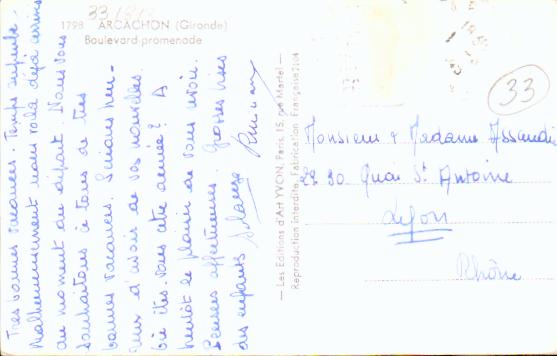 33
1798 ARCACHON (Gironde)
Boulevard-promenade
Très bonnes vacances. Temps superbe.
Malheureusement nous voilà déjà arrivés
au moment du départ. Nous vous
souhaitons à tous de très
bonnes vacances. Serions heu-
reux d'avoir de vos nouvelles.
Où êtes-vous cette année? A
bientôt le plaisir de vous revoir.
Pensées affectueuses. Grosses bises
des enfants Solange
— Les Editions d'Art YVON, Paris, 15, rue Martel —
Reproduction Interdite, Fabrication Française
33
Monsieur & Madame
28 30 Quai St Antoine
Lyon
Rhône